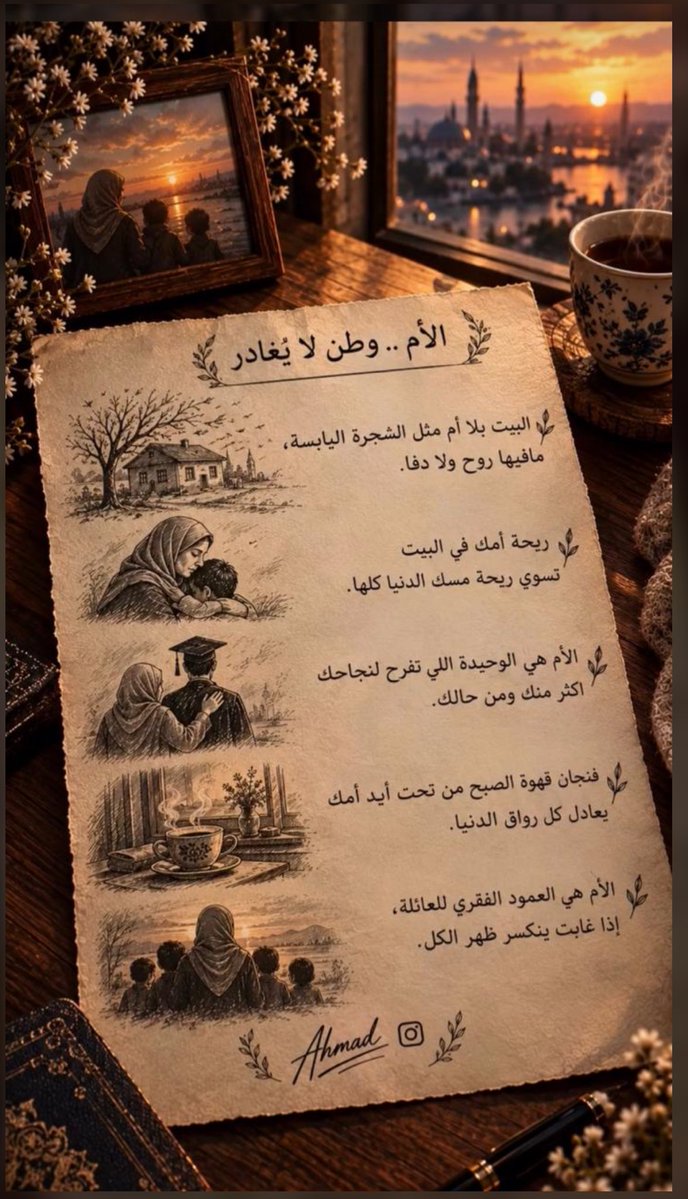 الأم .. وطن لا يُغادر
البيت بلا أم مثل الشجرة اليابسة،
مافيها روح ولا دفا.
ريحة أمك في البيت
تسوي ريحة مسك الدنيا كلها.
الأم هي الوحيدة اللي تفرح لنجاحك
اكثر منك ومن حالك.
فنجان قهوة الصبح من تحت أيد أمك
يعادل كل رواق الدنيا.
الأم هي العمود الفقري للعائلة،
إذا غابت ينكسر ظهر الكل.
Ahmad